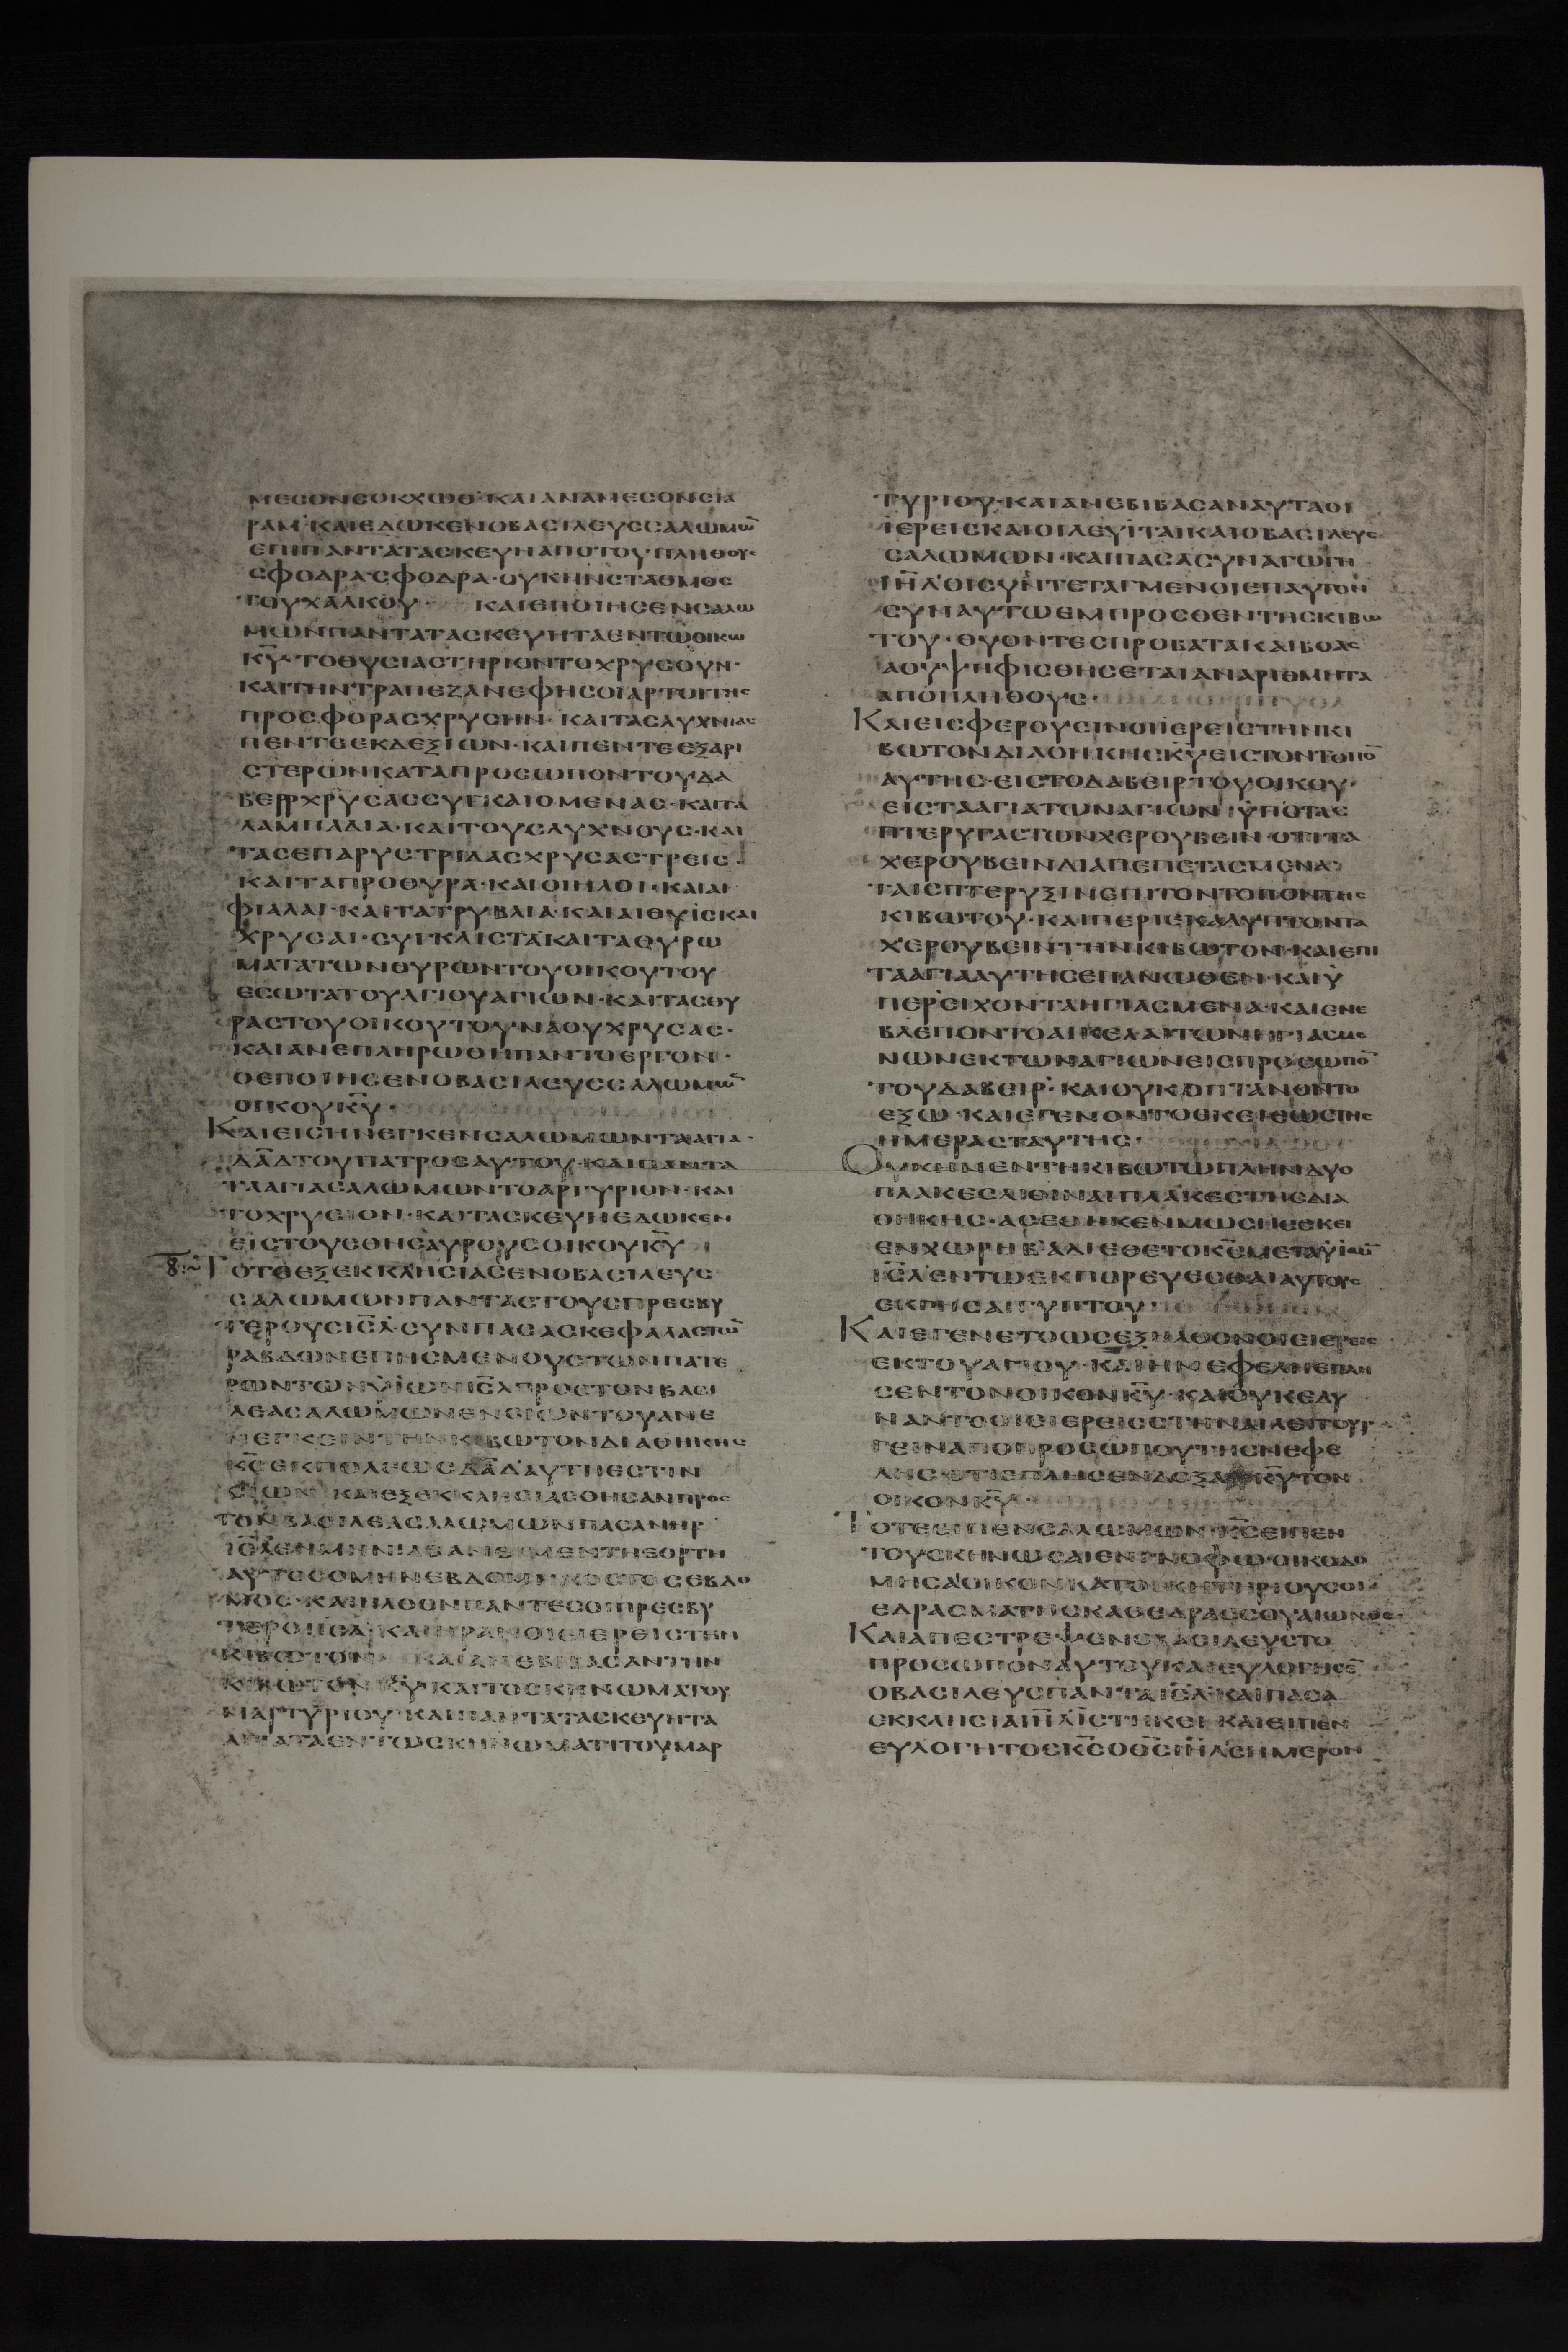 ΜΕΣΟΝΣΟΚΧΩΘ·ΚΑΙΑΝΑΜΕΣΟΝΣΙΑ
ΡΑΜ·ΚΑΙΕΔΩΚΕΝΟΒΑΣΙΛΕΥΣΣΑΛΩΜΩ̅
ΕΠΙΠΑΝΤΑΤΑΣΚΕΥΗΑΠΟΤΟΥΠΛΗΘΟΥΣ
ΣΦΟΔΡΑΣΦΟΔΡΑ·ΟΥΚΗΝΣΤΑΘΜΟΣ
ΤΟΥΧΑΛΚΟΥ· ΚΑΙΕΠΟΙΗΣΕΝΣΑΛΩ
ΜΩΝΠΑΝΤΑΤΑΣΚΕΥΗΤΑΕΝΤΩΟΙΚΩ
Κ̅Υ̅·ΤΟΘΥΣΙΑΣΤΗΡΙΟΝΤΟΧΡΥΣΟΥΝ·
ΚΑΙΤΗΝΤΡΑΠΕΖΑΝΕΦΗΣΟΙΑΡΤΟΙΤΗΣ
ΠΡΟΣΦΟΡΑΣΧΡΥΣΗΝ·ΚΑΙΤΑΣΛΥΧΝΙΑΣ
ΠΕΝΤΕΕΚΔΕΞΙΩΝ·ΚΑΙΠΕΝΤΕΕΞΑΡΙ
ΣΤΕΡΩΝΚΑΤΑΠΡΟΣΩΠΟΝΤΟΥΔΑ
ΒΕΙΡΧΡΥΣΑΣΣΥΓΚΑΙΟΜΕΝΑΣ·ΚΑΙΤΑ
ΛΑΜΠΑΔΙΑ·ΚΑΙΤΟΥΣΛΥΧΝΟΥΣ·ΚΑΙ
ΤΑΣΕΠΑΡΥΣΤΡΙΔΑΣΧΡΥΣΑΣΤΡΕΙΣ·
ΚΑΙΤΑΠΡΟΘΥΡΑ·ΚΑΙΟΙΗΛΟΙ·ΚΑΙΑΙ
ΦΙΑΛΑΙ·ΚΑΙΤΑΤΡΥΒΛΙΑ·ΚΑΙΑΙΘΥΙΣΚΑΙ
ΧΡΥΣΑΙ·ΣΥΓΚΛΙΣΤΑΚΑΙΤΑΘΥΡΩ
ΜΑΤΑΤΩΝΘΥΡΩΝΤΟΥΟΙΚΟΥΤΟΥ
ΕΣΩΤΑΤΟΥΑΓΙΟΥΑΓΙΩΝ·ΚΑΙΤΑΣΘΥ
ΡΑΣΤΟΥΟΙΚΟΥΤΟΥΝΑΟΥΧΡΥΣΑΣ·
ΚΑΙΑΝΕΠΛΗΡΩΘΗΠΑΝΤΟΕΡΓΟΝ·
ΟΕΠΟΙΗΣΕΝΟΒΑΣΙΛΕΥΣΣΑΛΩΜΩ̅
ΟΙΚΟΥΚ̅Υ̅·
ΚΑΙΕΙΣΗΝΕΓΚΕΝΣΑΛΩΜΩΝΤΑΑΓΙΑ·
Δ̅Α̅Δ̅ΤΟΥΠΑΤΡΟΣΑΥΤΟΥ·ΚΑΙΠΑΝΤΑ
ΤΑΑΓΙΑΣΑΛΩΜΩΝΤΟΑΡΓΥΡΙΟΝ·ΚΑΙ
ΤΟΧΡΥΣΙΟΝ·ΚΑΙΤΑΣΚΕΥΗΕΔΩΚΕΝ
ΕΙΣΤΟΥΣΘΗΣΑΥΡΟΥΣΟΙΚΟΥΚ̅Υ̅
ΤΟΤΕΕΞΕΚΚΛΗΣΙΑΣΕΝΟΒΑΣΙΛΕΥΣ
ΣΑΛΩΜΩΝΠΑΝΤΑΣΤΟΥΣΠΡΕΣΒΥ
ΤΕΡΟΥΣΙ̅Σ̅Λ̅·ΣΥΝΠΑΣΑΣΚΕΦΑΛΑΣΤΩ̅
ΡΑΒΔΩΝΕΠΗΣΜΕΝΟΥΣΤΩΝΠΑΤΕ
ΡΩΝΤΩΝΥΙΩΝΙ̅Σ̅Λ̅ΠΡΟΣΤΟΝΒΑΣΙ
ΛΕΑΣΑΛΩΜΩΝΕΝΣΙΩΝΤΟΥΑΝΕ
ΝΕΓΚΕΙΝΤΗΝΚΙΒΩΤΟΝΔΙΑΘΗΚΗΣ
Κ̅Υ̅ΕΚΠΟΛΕΩΣΔ̅Α̅Δ̅ΑΥΤΗΕΣΤΙΝ
ΣΙΩΝ ΚΑΙΕΞΕΚΚΛΗΣΙΑΣΘΗΣΑΝΠΡΟΣ
ΤΟΝΒΑΣΙΛΕΑΣΑΛΩΜΩΝΠΑΣΑΝΗΡ
ΑΥΤΟΣΟΜΗΝΕΒΔΟΜΗΚΟΣΤΟΣΕΒΔΟ
ΜΟΣ·ΚΑΙΗΛΘΟΝΠΑΝΤΕΣΟΙΠΡΕΣΒΥ
ΤΕΡΟΙΙ̅Σ̅Λ̅·ΚΑΙΗΡΑΝΟΙΙΕΡΕΙΣΤΗΝ
ΚΙΒΩΤΟΝ· ΚΑΙΑΝΕΒΙΒΑΣΑΝΤΗΝ
ΚΙΒΩΤΟΝΚ̅Υ̅·ΚΑΙΤΟΣΚΗΝΩΜΑΤΟΥ
ΜΑΡΤΥΡΙΟΥ·ΚΑΙΠΑΝΤΑΤΑΣΚΕΥΗΤΑ
ΑΓΙΑΤΑΕΝΤΩΣΚΗΝΩΜΑΤΙΤΟΥΜΑΡ
ΤΥΡΙΟΥ·ΚΑΙΑΝΕΒΙΒΑΣΑΝΑΥΤΑΟΙ
ΙΕΡΕΙΣΚΑΙΟΙΛΕΥΙΤΑΙΚΑΙΟΒΑΣΙΛΕΥΣ
ΣΑΛΩΜΩΝ·ΚΑΙΠΑΣΑΣΥΝΑΓΩΓΗ
Ι̅Η̅Λ̅ΟΙΣΥΝΤΕΤΑΓΜΕΝΟΙΕΠΑΥΤΟΝ
ΣΥΝΑΥΤΩΕΜΠΡΟΣΘΕΝΤΗΣΚΙΒΩ
ΤΟΥ·ΘΥΟΝΤΕΣΠΡΟΒΑΤΑΚΑΙΒΟΑΣ
ΑΟΥΨΗΦΙΣΘΗΣΕΤΑΙΑΝΑΡΙΘΜΗΤΑ
ΑΠΟΠΛΗΘΟΥΣ·
ΚΑΙΕΙΣΦΕΡΟΥΣΙΝΟΙΙΕΡΕΙΣΤΗΝΚΙ
ΒΩΤΟΝΔΙΑΘΗΚΗΣΚ̅Υ̅ΕΙΣΤΟΝΤΟΠΟ̅
ΑΥΤΗΣ·ΕΙΣΤΟΔΑΒΕΙΡΤΟΥΟΙΚΟΥ·
ΕΙΣΤΑΑΓΙΑΤΩΝΑΓΙΩΝ·ΥΠΟΤΑΣ
ΠΤΕΡΥΓΑΣΤΩΝΧΕΡΟΥΒΕΙΝ·ΟΤΙΤΑ
ΧΕΡΟΥΒΕΙΝΔΙΑΠΕΠΕΤΑΣΜΕΝΑ
ΤΑΙΣΠΤΕΡΥΞΙΝΕΠΙΤΟΝΤΟΠΟΝΤΗΣ
ΚΙΒΩΤΟΥ·ΚΑΙΠΕΡΙΕΚΑΛΥΠΤΟΝΤΑ
ΧΕΡΟΥΒΕΙΝΤΗΝΚΙΒΩΤΟΝ·ΚΑΙΕΠΙ
ΤΑΑΓΙΑΑΥΤΗΣΕΠΑΝΩΘΕΝ·ΚΑΙΥ
ΠΕΡΕΙΧΟΝΤΑΗΓΙΑΣΜΕΝΑ·ΚΑΙΕΝΕ
ΒΛΕΠΟΝΤΟΑΙΚΕΑΛΑΙΤΩΝΗΓΙΑΣΜΕ
ΝΩΝΕΚΤΩΝΑΓΙΩΝΕΙΣΠΡΟΣΩΠΟ̅
ΤΟΥΔΑΒΕΙΡ·ΚΑΙΟΥΚΩΠΤΑΝΟΝΤΟ
ΕΞΩ·ΚΑΙΕΓΕΝΟΝΤΟΕΚΕΙΕΩΣΤΗΣ
ΗΜΕΡΑΣΤΑΥΤΗΣ·
ΟΥΚΗΝΕΝΤΗΚΙΒΩΤΩΠΛΗΝΔΥΟ
ΠΛΑΚΕΣΛΙΘΙΝΑΙΠΛΑΚΕΣΤΗΣΔΙΑ
ΘΗΚΗΣ·ΑΣΕΘΗΚΕΝΜΩΣΗΣΕΚΕΙ
ΕΝΧΩΡΗΒ·ΑΔΙΕΘΕΤΟΚ̅Σ̅ΜΕΤΑΥΙΩ̅
Ι̅Σ̅Λ̅ΕΝΤΩΕΚΠΟΡΕΥΕΣΘΑΙΑΥΤΟΥΣ
ΕΚΓΗΣΑΙΓΥΠΤΟΥ·
ΚΑΙΕΓΕΝΕΤΟΩΣΕΞΗΛΘΟΝΟΙΙΕΡΕΙΣ
ΕΚΤΟΥΑΓΙΟΥ·ΚΑΙΗΝΕΦΕΛΗΕΠΛΗ
ΣΕΝΤΟΝΟΙΚΟΝΚ̅Υ̅·ΚΑΙΟΥΚΕΔΥ
ΝΑΝΤΟΟΙΙΕΡΕΙΣΣΤΗΝΑΙΛΕΙΤΟΥΡ
ΓΕΙΝΑΠΟΠΡΟΣΩΠΟΥΤΗΣΝΕΦΕ
ΛΗΣ·ΟΤΙΕΠΛΗΣΕΝΔΟΞΑΚ̅Υ̅ΤΟΝ
ΟΙΚΟΝΚ̅Υ̅·
ΤΟΤΕΕΙΠΕΝΣΑΛΩΜΩΝ·Κ̅Σ̅ΕΙΠΕΝ
ΤΟΥΣΚΗΝΩΣΑΙΕΝΓΝΟΦΩ·ΟΙΚΟΔΟ
ΜΗΣΑΟΙΚΟΝΚΑΤΟΙΚΗΤΗΡΙΟΥΣΟΙ
ΕΔΡΑΣΜΑΤΗΣΚΑΘΕΔΡΑΣΣΟΥΑΙΩΝΟΣ·
ΚΑΙΑΠΕΣΤΡΕΨΕΝΟΒΑΣΙΛΕΥΣΤΟ
ΠΡΟΣΩΠΟΝΑΥΤΟΥΚΑΙΕΥΛΟΓΗΣΕ̅
ΟΒΑΣΙΛΕΥΣΠΑΝΤΑΙ̅Σ̅Λ̅·ΚΑΙΠΑΣΑ
ΕΚΚΛΗΣΙΑΙ̅Η̅Λ̅ΙΣΤΗΚΕΙ·ΚΑΙΕΙΠΕΝ
ΕΥΛΟΓΗΤΟΣΚ̅Σ̅ΟΘ̅Σ̅Ι̅Η̅Λ̅ΣΗΜΕΡΟΝ